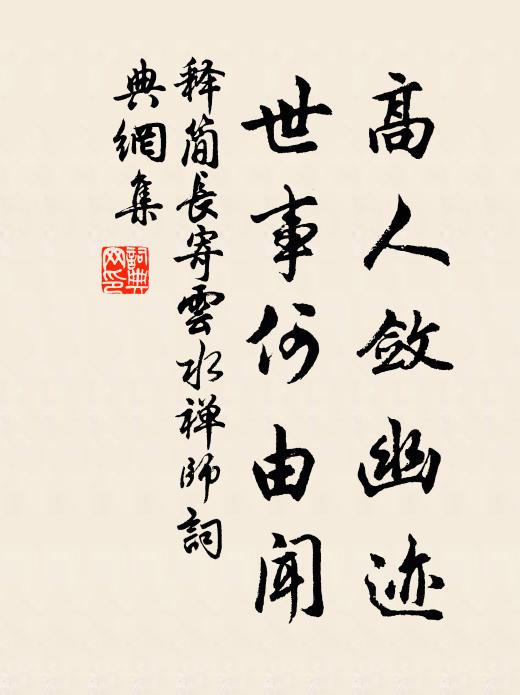 高人敛幽迹
世事何由闻
释简長寄雲水禅師詞
典網集
詞典
网印